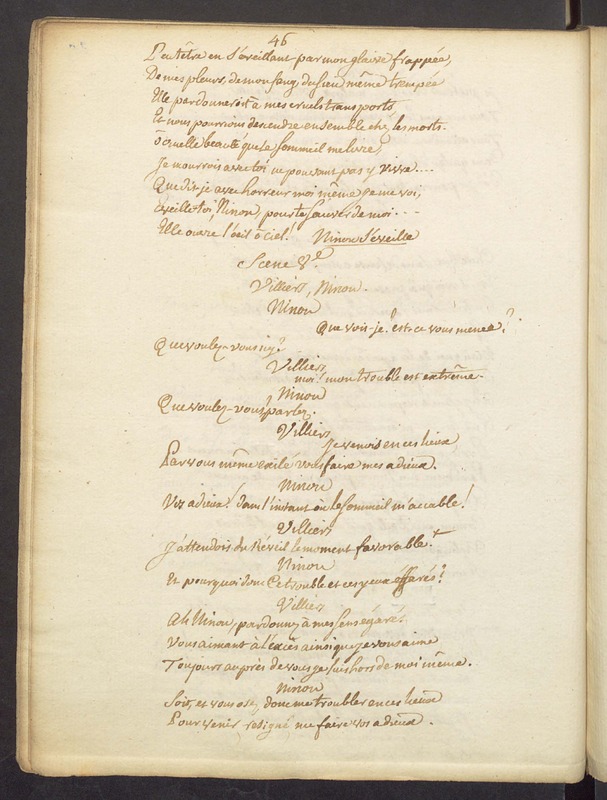 46
Peutêtre en s'éveillant par mon glaive frappée,
De mes pleurs, de mon sang, du sien même trempée
Elle pardonneroit à mes cruels transports
Et nous pourrions descendre ensemble chez les morts.
ô quelle beauté que le sommeil me livre,
Je mourrois avec toi ne pouvant pas y vivre....
Que dis-je avec horreur moi même je me voi,
éveille-toi, Ninon, pour te sauver de moi...
Elle ouvre l'œil ô ciel! Ninon s'éveille
Scene 8.e
Villiers, Ninon.
Ninon
Que vois-je! est-ce vous même?
Que voulez-vous ici?
Villiers
moi! mon trouble est extrême.
Ninon
Que voulez-vous? parlez.
Villiers
Je venois en ces lieux,
Par vous même exilé vous faire mes adieux.
Ninon
Vos adieux! dans l'instant où le sommeil m'accable!
Villiers
J'attendois du Réveil le moment favorable.
Ninon
Et pourquoi donc ce trouble et ces yeux éffarés?
Villiers
Ah Ninon, pardonnez à mes sens égarés.
Vous aimant à l'excès ainsi que je vous aime
Toujours auprès de vous je suis hors de moi même.
Ninon
Soit, et vous osez donc me troubler en ces lieux
Pour venir, resigné, me faire vos adieux.